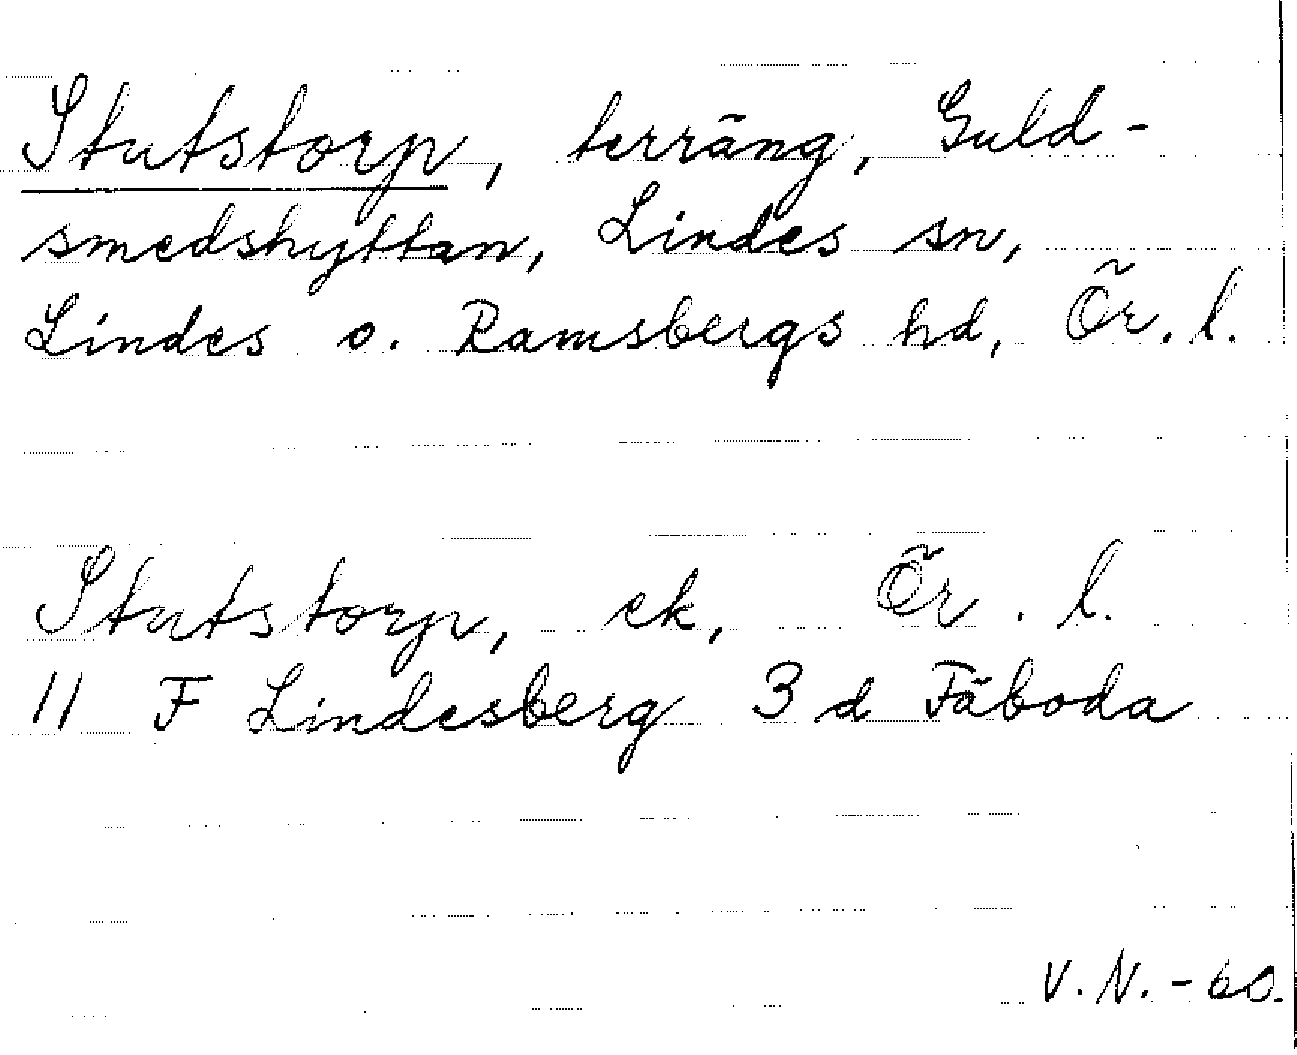 Stutstorp, terräng, Guld-
smedshyttan, Lindes sn,
Lindes o. Ramsbergs hd, Ör. l.
Stutstorp, ek, Ör. l.
11 F Lindesberg 3 d Fäboda
V. N. - 60.